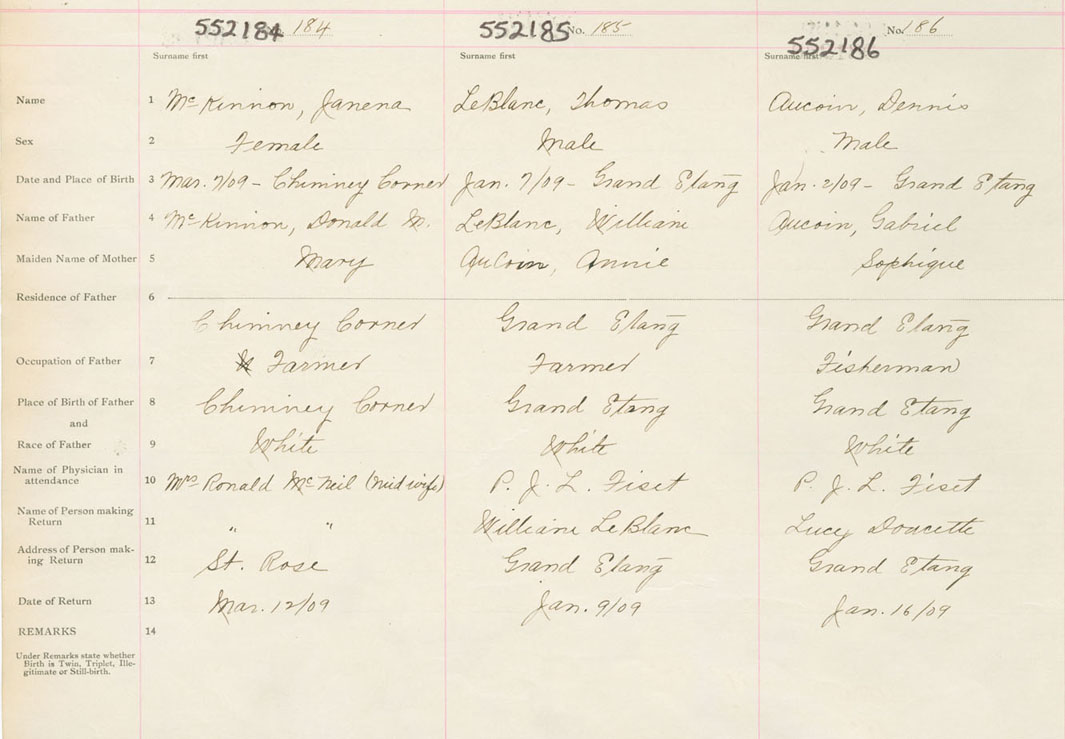 552184 No. 184 552185 No. 185 552186 No. 186
Surname first Surname first Surname first
Name 1 McKinnon, Janena LeBlanc, Thomas Aucoin, Dennis
Sex 2 Female Male Male
Date and Place of Birth 3 Mar. 7/09 - Chimney Corner Jan. 7/09 - Grand Etang Jan. 2/09 - Grand Etang
Name of Father 4 McKinnon, Donald M. LeBlanc, William Aucoin, Gabriel
Maiden Name of Mother 5 Mary AuCoin, Annie Sophique
Residence of Father 6
Chimney Corner Grand Etang Grand Etang
Occupation of Father 7 Farmer Farmer Fisherman
Place of Birth of Father 8 Chimney Corner Grand Etang Grand Etang
and
Race of Father 9 White White White
Name of Physician in
attendance 10 Mrs Ronald McNeil (Midwife) P. J. L. Fiset P. J. L. Fiset
Name of Person making
Return 11 " " William LeBlanc Lucy Doucette
Address of Person mak-
ing Return 12 St. Rose Grand Etang Grand Etang
Date of Return 13 Mar. 12/09 Jan. 9/09 Jan. 16/09
REMARKS 14
Under Remarks state whether
Birth is Twin, Triplet, Ille-
gitimate or Still-birth.